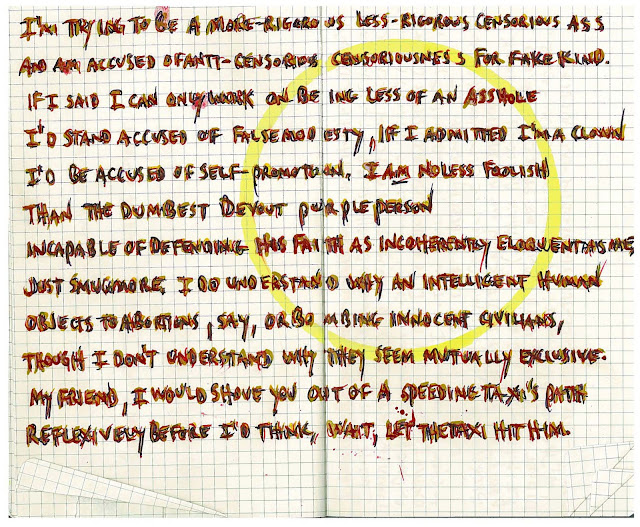 I'M TRYING TO BE A MORE-RIGOROUS LESS-RIGOROUS CENSORIOUS ASS
AND AM ACCUSED OF ANTI-CENSORIOUS CENSORIOUSNESS FOR FAKE KIND.
IF I SAID I CAN ONLY WORK ON BEING LESS OF AN ASSHOLE
I'D STAND ACCUSED OF FALSE MODESTY, IF I ADMITTED I'M A CLOWN
I'D BE ACCUSED OF SELF-PROMOTION. I AM NO LESS FOOLISH
THAN THE DUMBEST DEVOUT PURPLE PERSON
INCAPABLE OF DEFENDING HIS FAITH AS INCOHERENTLY ELOQUENT AS ME,
JUST SMUG MORE. I DO UNDERSTAND WHY AN INTELLIGENT HUMAN
OBJECTS TO ABORTIONS, SAY, OR BOMBING INNOCENT CIVILIANS,
THOUGH I DON'T UNDERSTAND WHY THEY SEEM MUTUALLY EXCLUSIVE.
MY FRIEND, I WOULD SHOVE YOU OUT OF A SPEEDING TAXI'S PATH
REFLEXIVELY BEFORE I'D THINK, WAIT, LET THE TAXI HIT HIM.